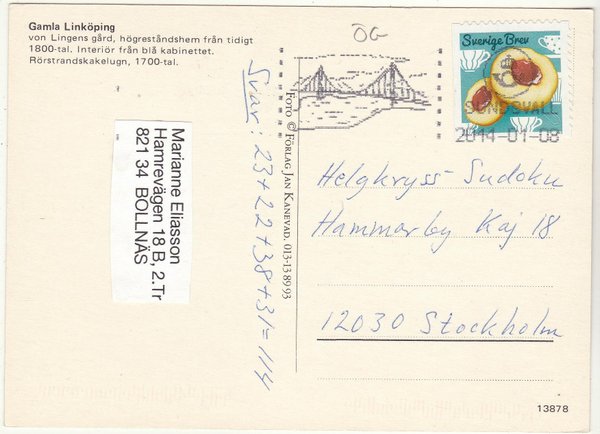 Gamla Linköping
von Lingens gård, högreståndshem från tidigt
1800-tal. Interiör från blå kabinettet.
Rörstrandskakelugn, 1700-tal.
ÖG
Sverige Brev
SUNDSVALL
2014-01-08
Marianne Eliasson
Hamrevägen 18 B, 2.Tr
821 34 BOLLNÄS
Svar: 23+22+38+31=114
FOTO © FÖRLAG JAN KANEVAD, 013-13 89 93
Helgkryss-Sudoku
Hammarby Kaj 18
12030 Stockholm
13878